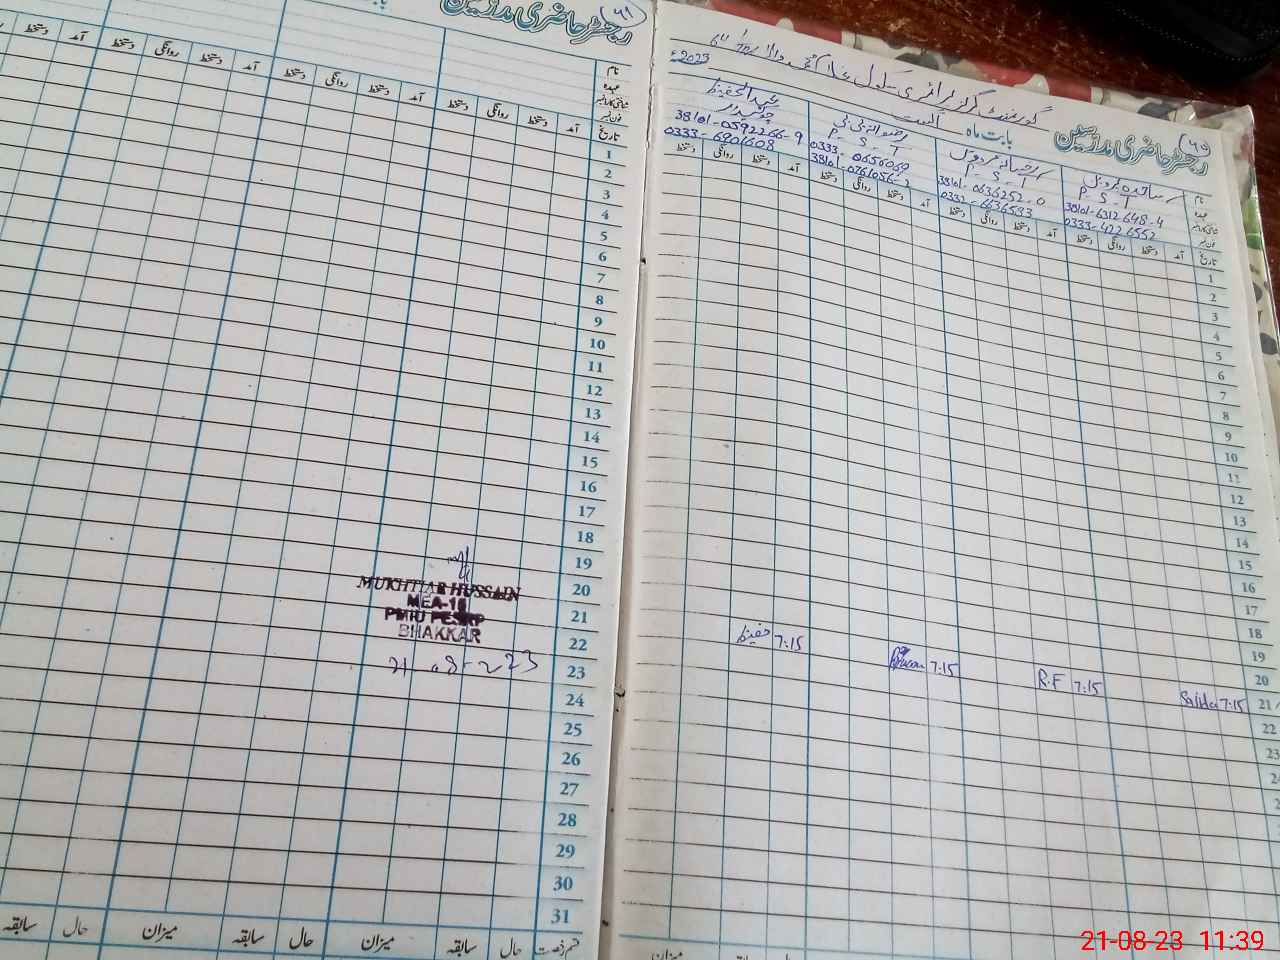 ۶۵
رجسٹر حاضری مدرسین
بابت ماہ
اگست
2023ء
گورنمنٹ گرلز پرائمری سکول
نام
عہدہ
شناختی کارڈ نمبر
فون نمبر
ساجدہ پروین
P.S.T
38101-6312648-4
0333-4226552
رخسانہ فردوس
P.S.T
38101-0636252-0
0332-6636533
رضوانہ بی بی
P.S.T
0333-0656069
عبدالحفیظ
چوکیدار
38101-0592266-9
0333-6901608
تاریخ آمد دستخط روانگی دستخط آمد دستخط روانگی دستخط آمد دستخط روانگی دستخط آمد دستخط روانگی دستخط
1
2
3
4
5
6
7
8
9
10
11
12
13
14
15
16
17
18
19
20
21 7:15 Sajida 7:15 R.F 7:15 7:15 حفیظ
22
23
میزان
سابقہ
رجسٹر حاضری مدرسین
۶۱
بابت ماہ
نام
عہدہ
شناختی کارڈ نمبر
فون نمبر
تاریخ آمد دستخط روانگی دستخط آمد دستخط روانگی دستخط آمد دستخط روانگی دستخط آمد دستخط
1
2
3
4
5
6
7
8
9
10
11
12
13
14
15
16
17
18
19
20
21
22
23
24
25
26
27
28
29
30
31
قسم رخصت حال سابقہ میزان حال سابقہ میزان حال سابقہ
MUKHTIAR HUSSAIN
MEA-18
PMIU PESRP
BHAKKAR
21-08-23 11:39